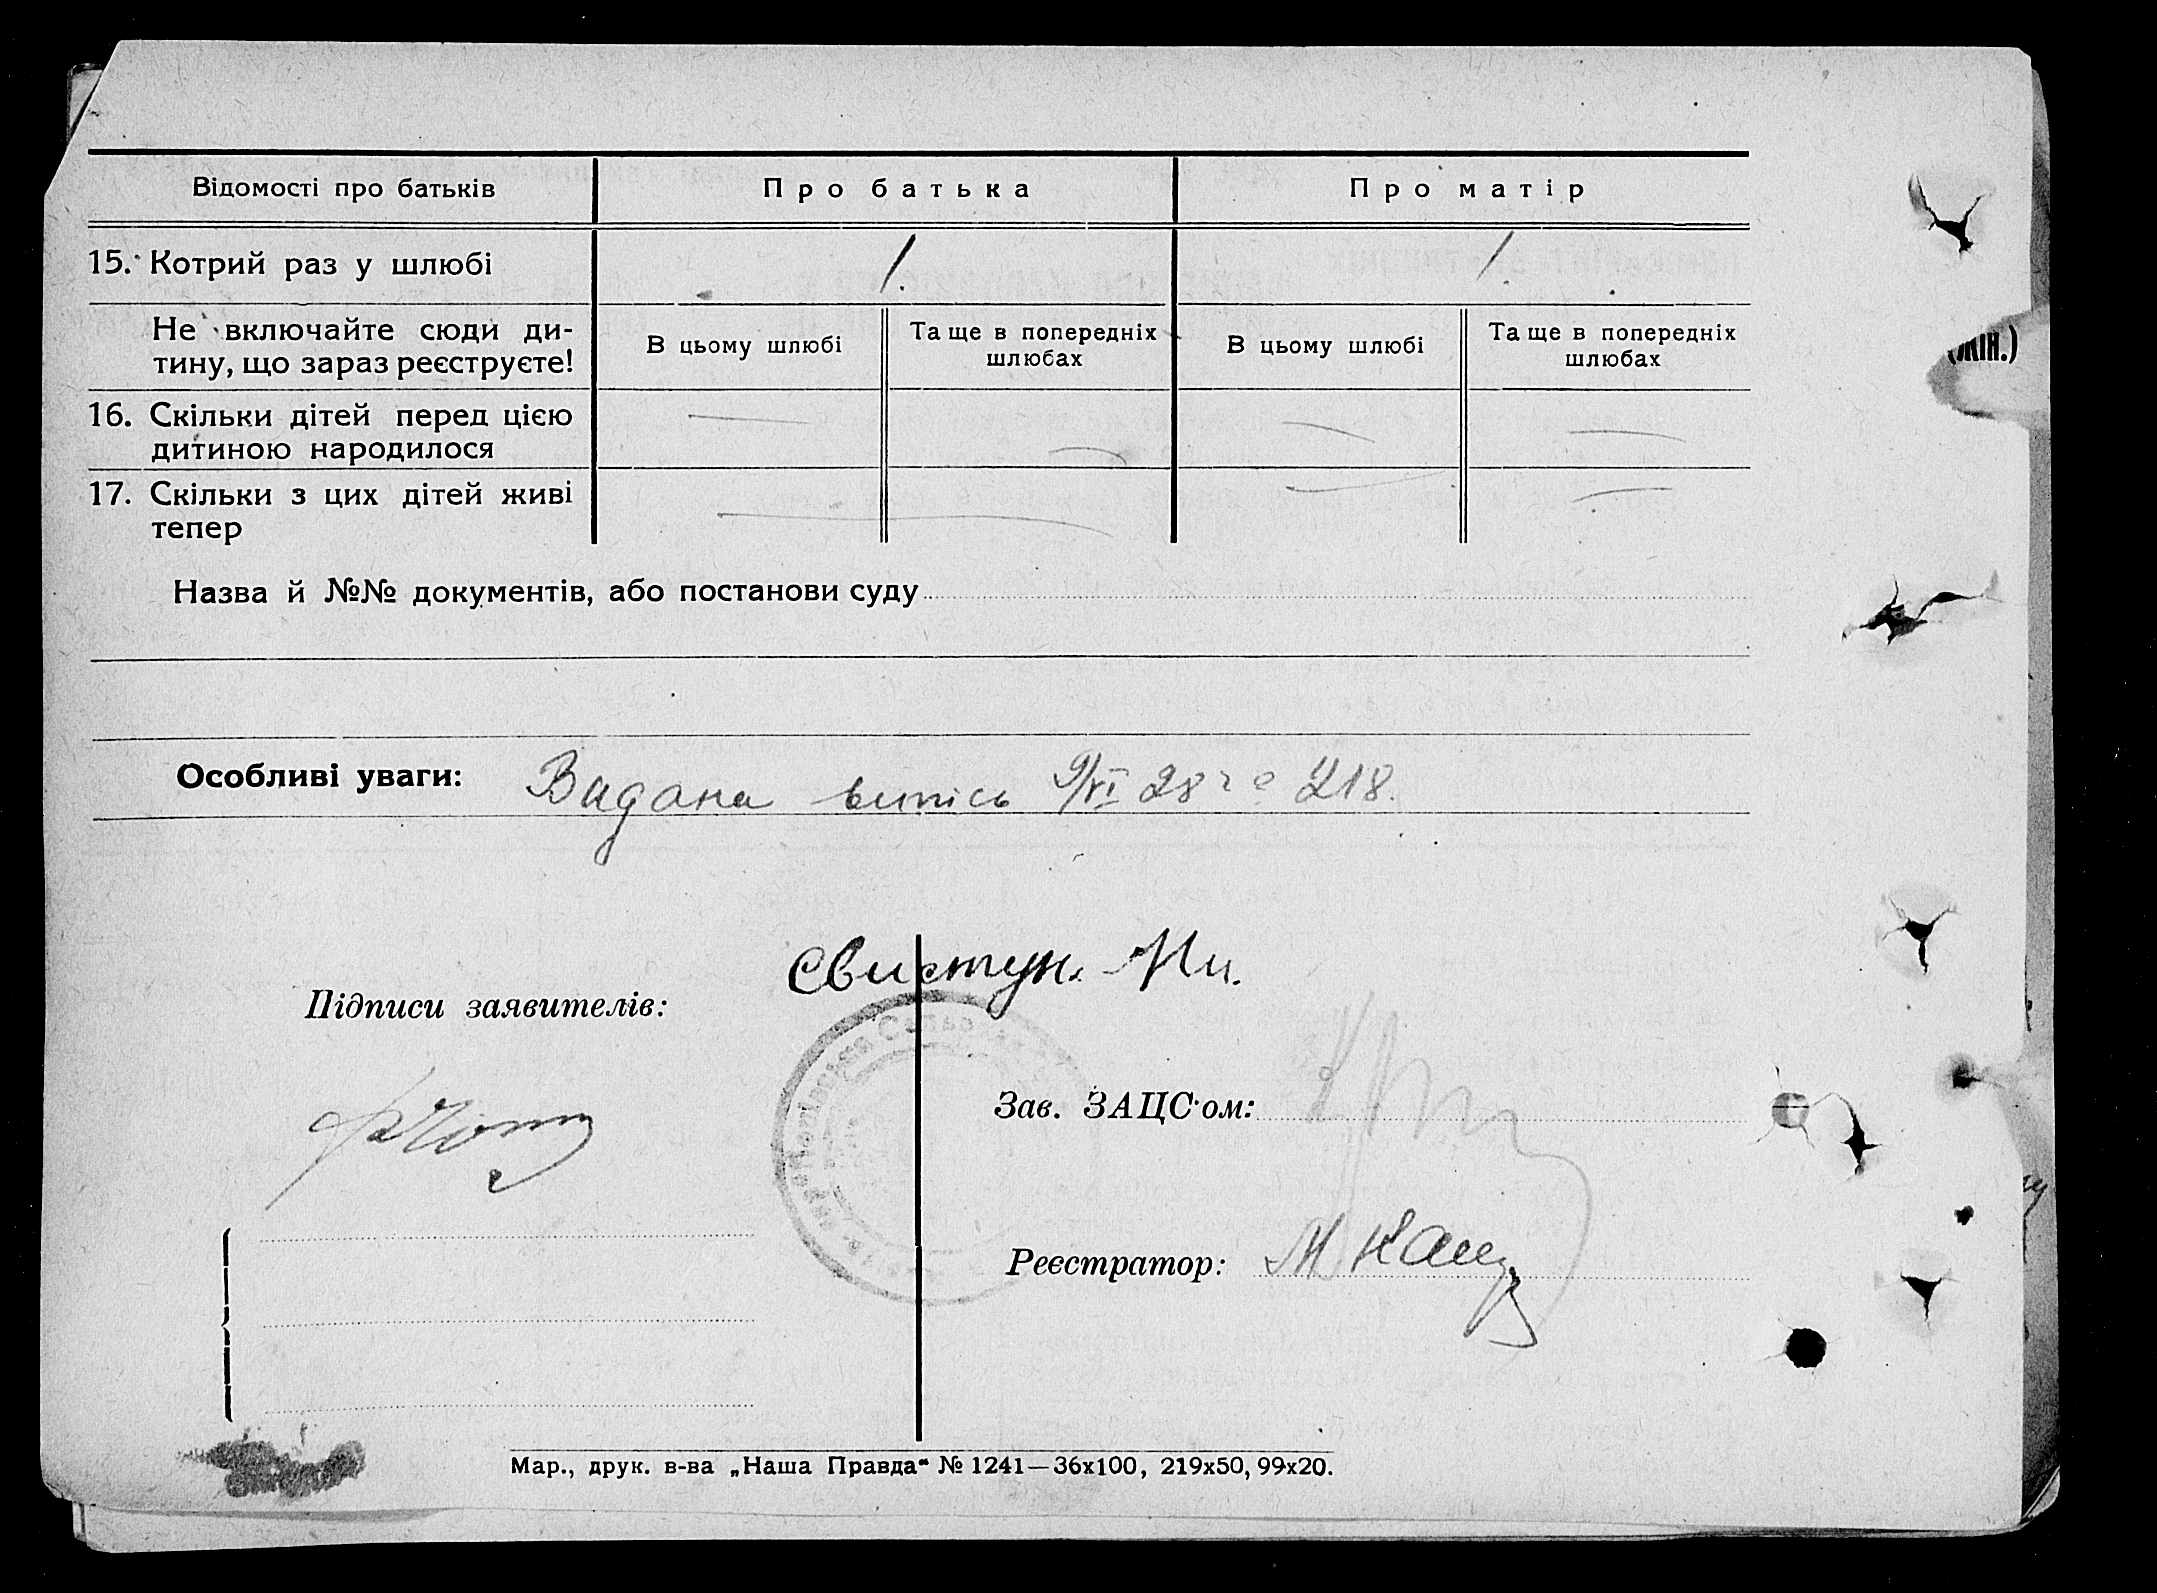 Відомості про батьків Про батька Про матір
15. Котрий раз у шлюбі 1. 1.
Не включайте сюди ди-
тину, що зараз реєструєте!
В цьому шлюбі
Та ще в попередніх
шлюбах
В цьому шлюбі
Та ще в попередніх
шлюбах
16. Скільки дітей перед цією
дитиною народилося
— — — —
17. Скільки з цих дітей живі
тепер
— — —
(жін.)
Назва й №№ документів, або постанови суду
Особливі уваги: Видана випись 9/VI 28 г 218.
Свистун Ми.
Підписи заявителів:
Зав. ЗАЦС'ом:
Реєстратор:
Мар., друк. в-ва „Наша Правда“ № 1241—36х100, 219х50, 99х20.